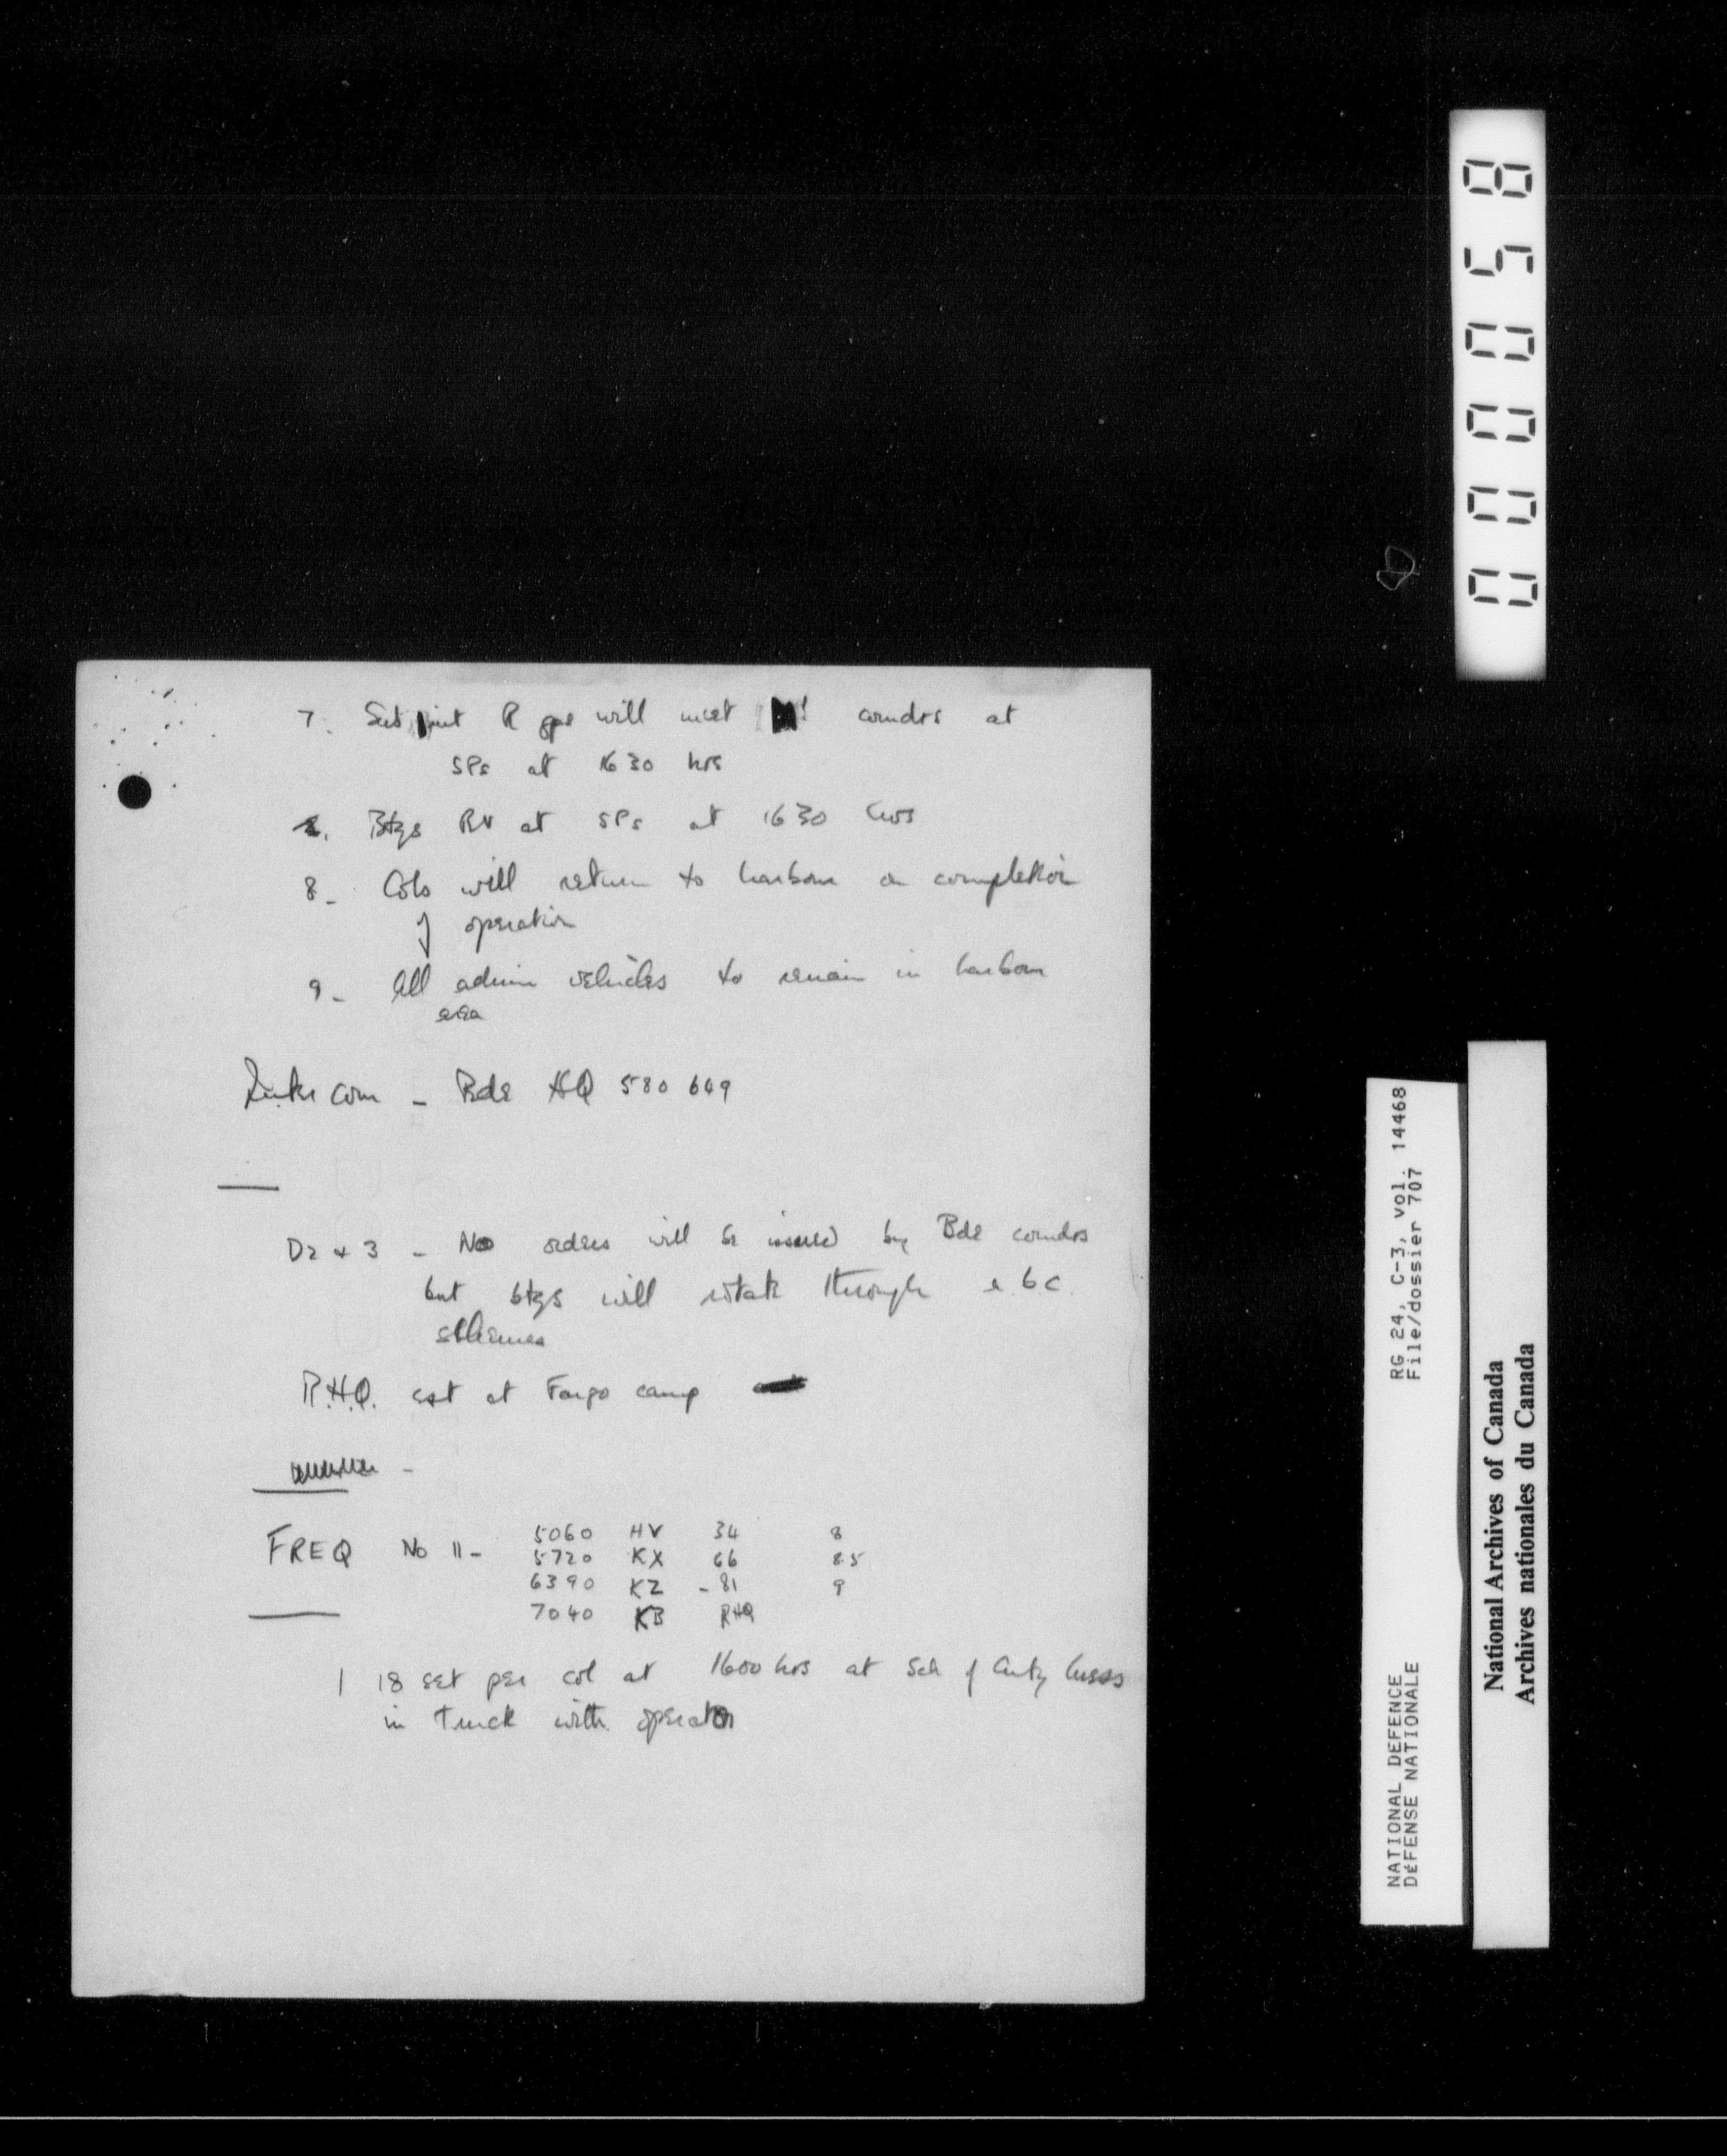 7. Sub unit R gps will meet comdrs at
SPs at 1630 hrs
Btys RV at SPs at 1630 hrs
8 - Cols will return to harbour on completion
of operation
9 - All admin vehicles to remain in harbour
area
Inter com - Bde HQ 580 649
D2 + 3 - No orders will be issued by Bde comdrs
but btys will rotate through a b c
schemes
R.H.Q. est at Fargo camp
FREQ No 11 -
5060 HV 34 8
5720 KX 66 8.5
6390 KZ - 81 9
7040 KB RHQ
1 18 set per col at 1600 hrs at Sch of Arty
in truck with operator
000058
RG 24, C-3, vol. 14468
File/dossier 707
NATIONAL DEFENCE
DÉFENSE NATIONALE
National Archives of Canada
Archives nationales du Canada